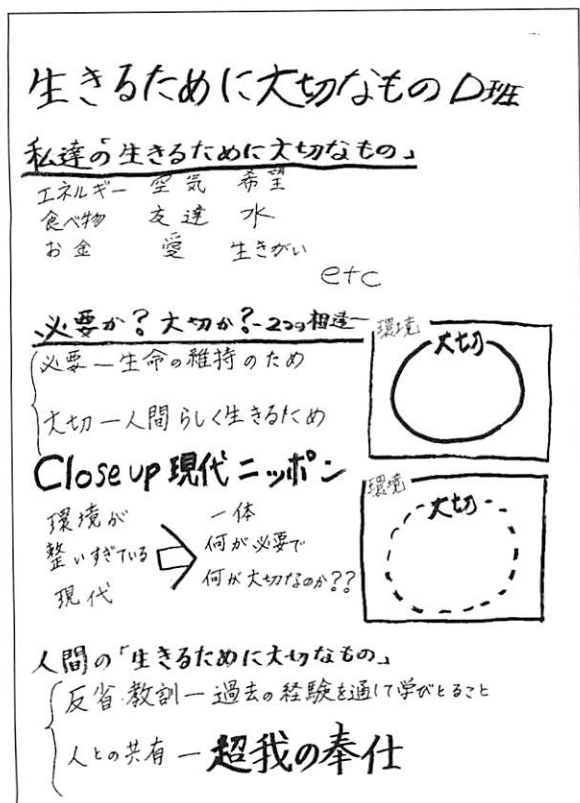 生きるために大切なもの D班
私達の「生きるために大切なもの」
エネルギー 空気 希望
食べ物 友達 水
お金 愛 生きがい
etc
必要か？大切か？-2つの相違-
環境
大切
必要ー生命の維持のため
大切ー人間らしく生きるため
Close up 現代ニッポン
環境
大切
環境が
整いすぎている
現代
一体
何が必要で
何が大切なのか??
人間の「生きるために大切なもの」
反省・教訓ー過去の経験を通して学びとること
人との共有ー超我の奉仕